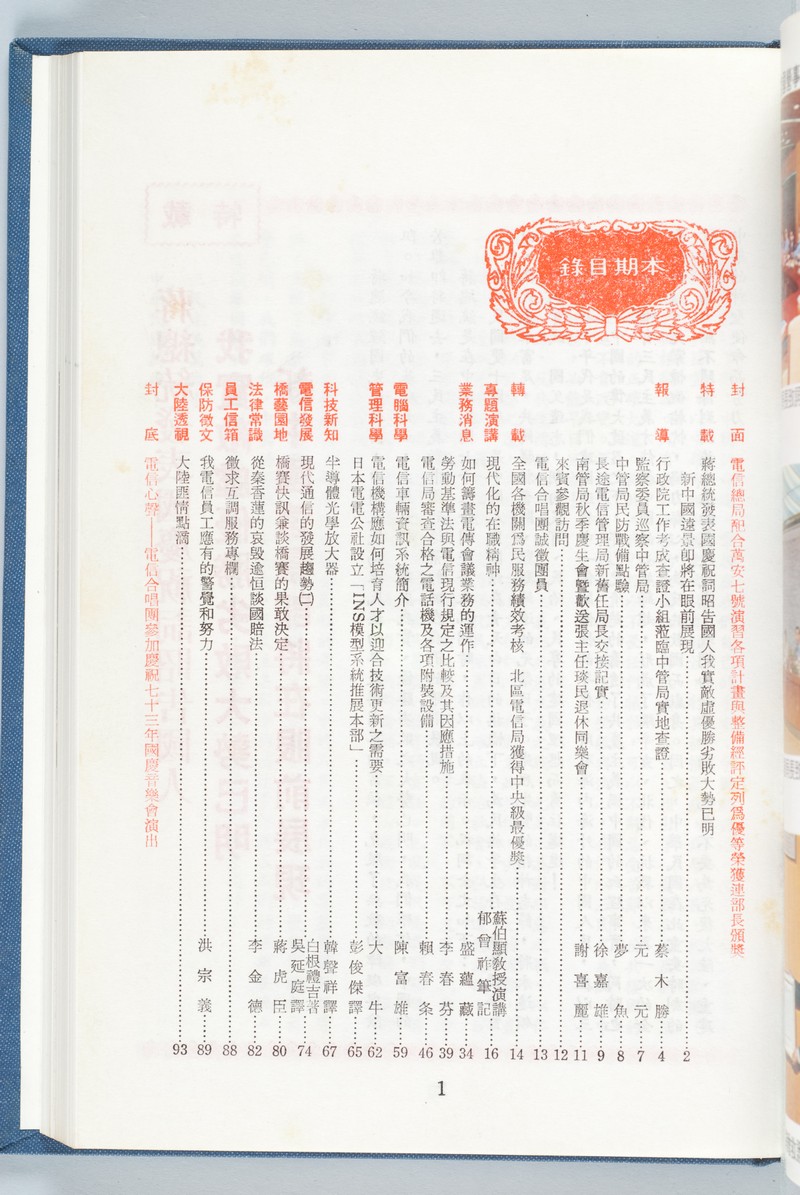 本期目錄
封面 電信總局配合萬安七號演習各項計畫與整備經評定列為優等榮獲連部長頒獎
特載 蔣總統發表國慶祝詞昭告國人我實敵虛優勝劣敗大勢已明
新中國遠景即將在眼前展現……2
報導 行政院工作考成查證小組蒞臨中管局實地查證……蔡木勝……4
監察委員巡察中管局……元元……7
中管局民防戰備點驗……夢魚……8
長途電信管理局新舊任局長交接記實……徐嘉雄……9
南管局秋季慶生會暨歡送張主任琰民退休同樂會……謝喜麗……11
來賓參觀訪問……12
電信合唱團誠徵團員……13
轉載 全國各機關為民服務績效考核 北區電信局獲得中央級最優獎……14
專題演講 現代化的在職精神……蘇伯顯教授演講 郁曾祚筆記……16
業務消息 如何籌畫電傳會議業務的運作……盛蘊藏……34
勞動基準法與電信現行規定之比較及其因應措施……李春芬……39
電信局審查合格之電話機及各項附裝設備……賴春条……46
電腦科學 電信車輛資訊系統簡介……陳富雄……59
管理科學 電信機構應如何培育人才以迎合技術更新之需要……大牛……62
日本電電公社設立「INS模型系統推展本部」……彭俊傑譯……65
科技新知 半導體光學放大器……韓聲祥譯……67
電信發展 現代通信的發展趨勢㈡……白根禮吉著 吳延庭譯……74
橋藝園地 橋賽快訊兼談橋賽的果敢決定……蔣虎臣……80
法律常識 從秦香蓮的哀毀逾恒談國賠法……李金德……82
員工信箱 徵求互調服務專欄……88
保防微文 我電信員工應有的警覺和努力……洪宗義……89
大陸透視 大陸匪情點滴……93
封底 電信心聲——電信合唱團參加慶祝七十三年國慶音樂會演出
1